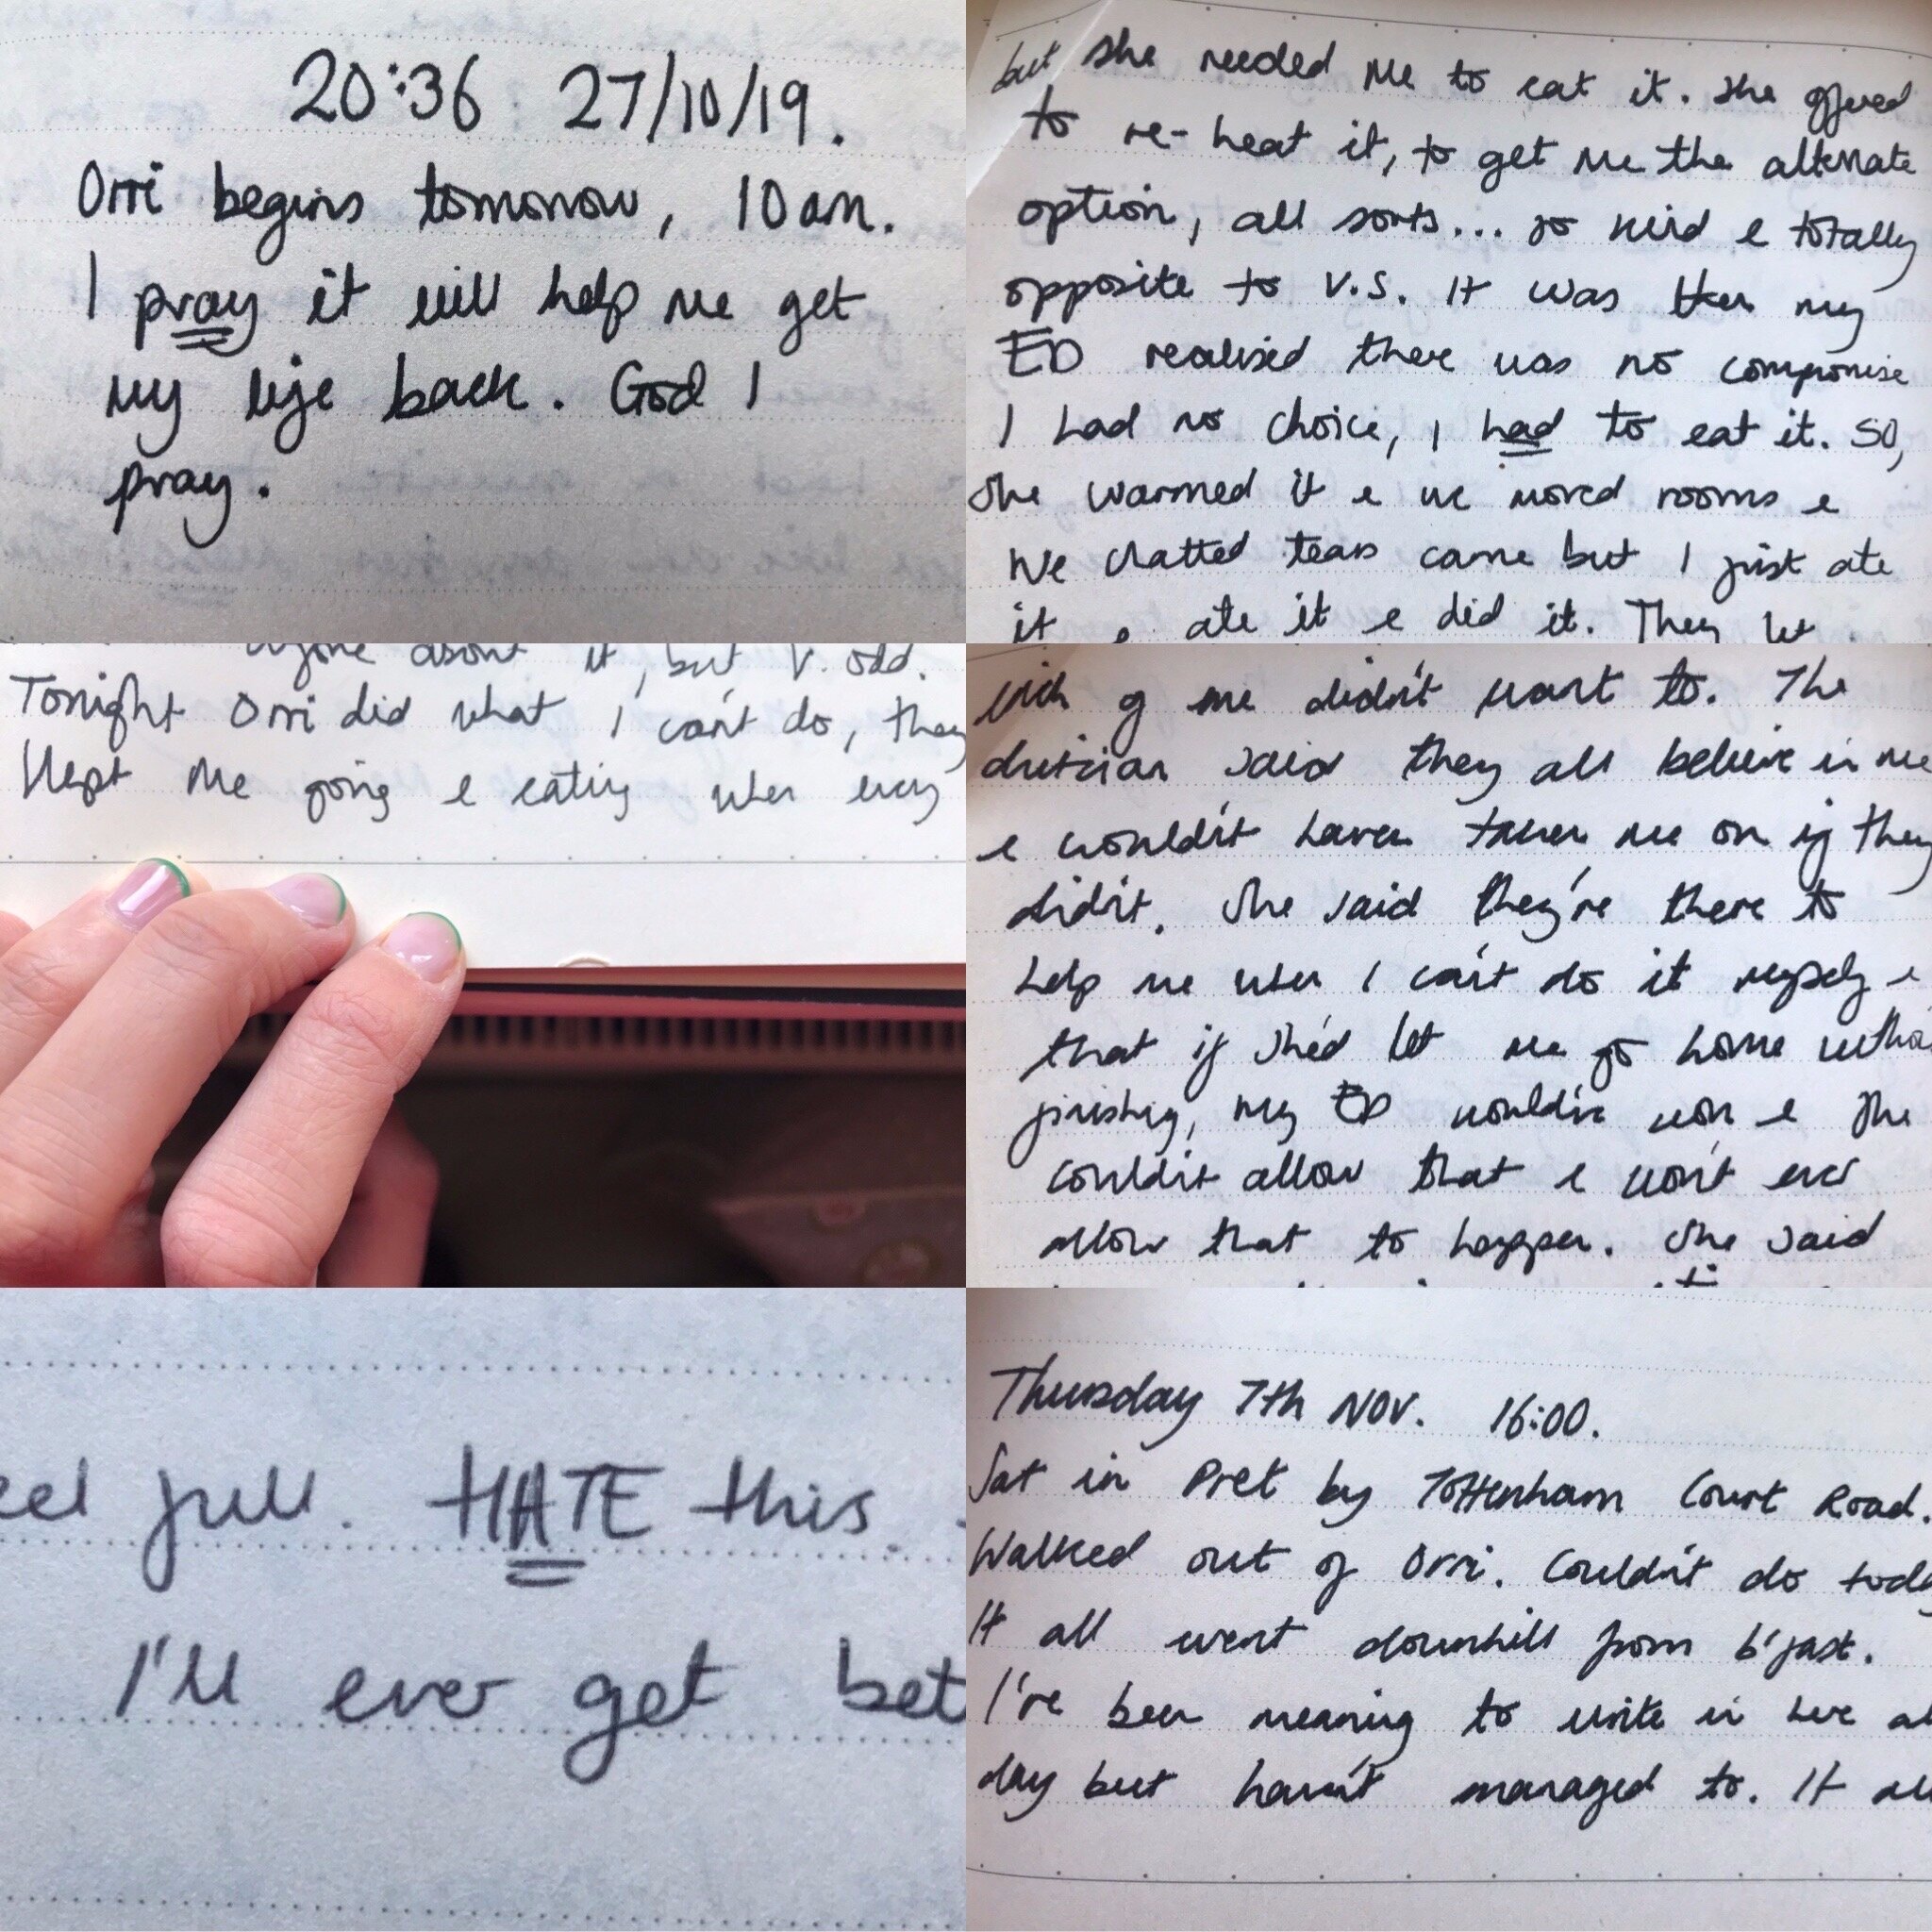 20:36 27/10/19.
Orri begins tomorrow, 10am.
I pray it will help me get
my life back. God I
pray.
but she needed me to eat it. She offered
to re-heat it, to get me the alternate
option, all sorts... so kind & totally
opposite to V.S. It was then my
ED realised there was no compromise
I had no choice, I had to eat it. SO,
she warmed it & we moved rooms &
We chatted tears came but I just ate
it & ate it & did it. They let
about it, but v. odd.
Tonight Orri did what I can't do, they
kept me going & eating when every
inch of me didn't want to. The
dietician said they all believe in me
& wouldn't haven taken me on if they
didn't. She said they're there to
help me when I can't do it myself &
that if she'd let me go home witho
finishing, my ED would've won & she
couldn't allow that & won't ever
allow that to happen. She said
eel full. HATE this.
I'll ever get bet
Thursday 7th NOV. 16:00.
Sat in Pret by Tottenham Court Road.
Walked out of Orri. Couldn't do toda
It all went downhill from b'fast.
I've been meaning to write in here al
day but haven't managed to. It all